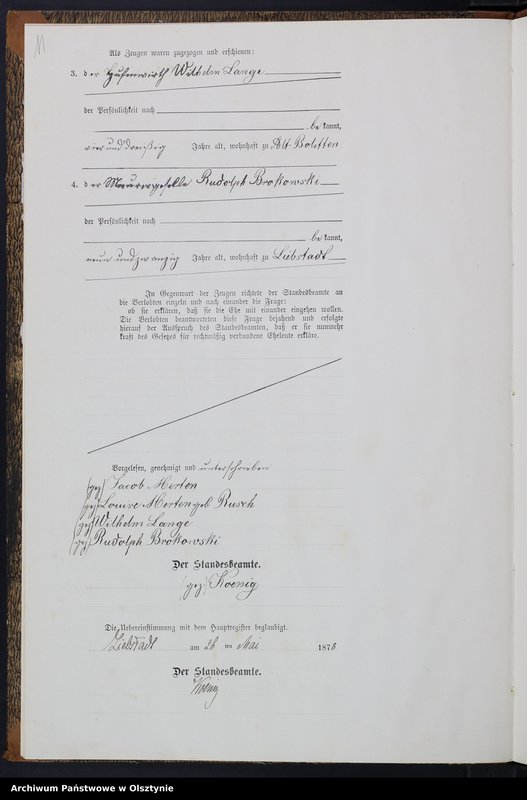 11
Als Zeugen waren zugezogen und erschienen:
3. der Hufenwirth Wilhelm Lange
der Persönlichkeit nach
bekannt,
vierunddreißig Jahre alt, wohnhaft zu Alt-Bolitten
4. der Maurergeselle Rudolph Brokowski
der Persönlichkeit nach
bekannt,
neunundzwanzig Jahre alt, wohnhaft zu Liebstadt
In Gegenwart der Zeugen richtete der Standesbeamte an
die Verlobten einzeln und nach einander die Frage:
ob sie erklären, daß sie die Ehe mit einander eingehen wollen.
Die Verlobten beantworteten diese Frage bejahend und erfolgte
hierauf der Ausspruch des Standesbeamten, daß er sie nunmehr
kraft des Gesetzes für rechtmäßig verbundene Eheleute erkläre.
Vorgelesen, genehmigt und unterschrieben
(gez) Jacob Merten
(gez) Louise Merten geb Rusch
(gez) Wilhelm Lange
(gez) Rudolph Brokowski
Der Standesbeamte.
(gez) Koenig
Die Uebereinstimmung mit dem Hauptregister beglaubigt.
Liebstadt am 26 ten Mai 1878
Der Standesbeamte.
Koenig
Archiwum Państwowe w Olsztynie